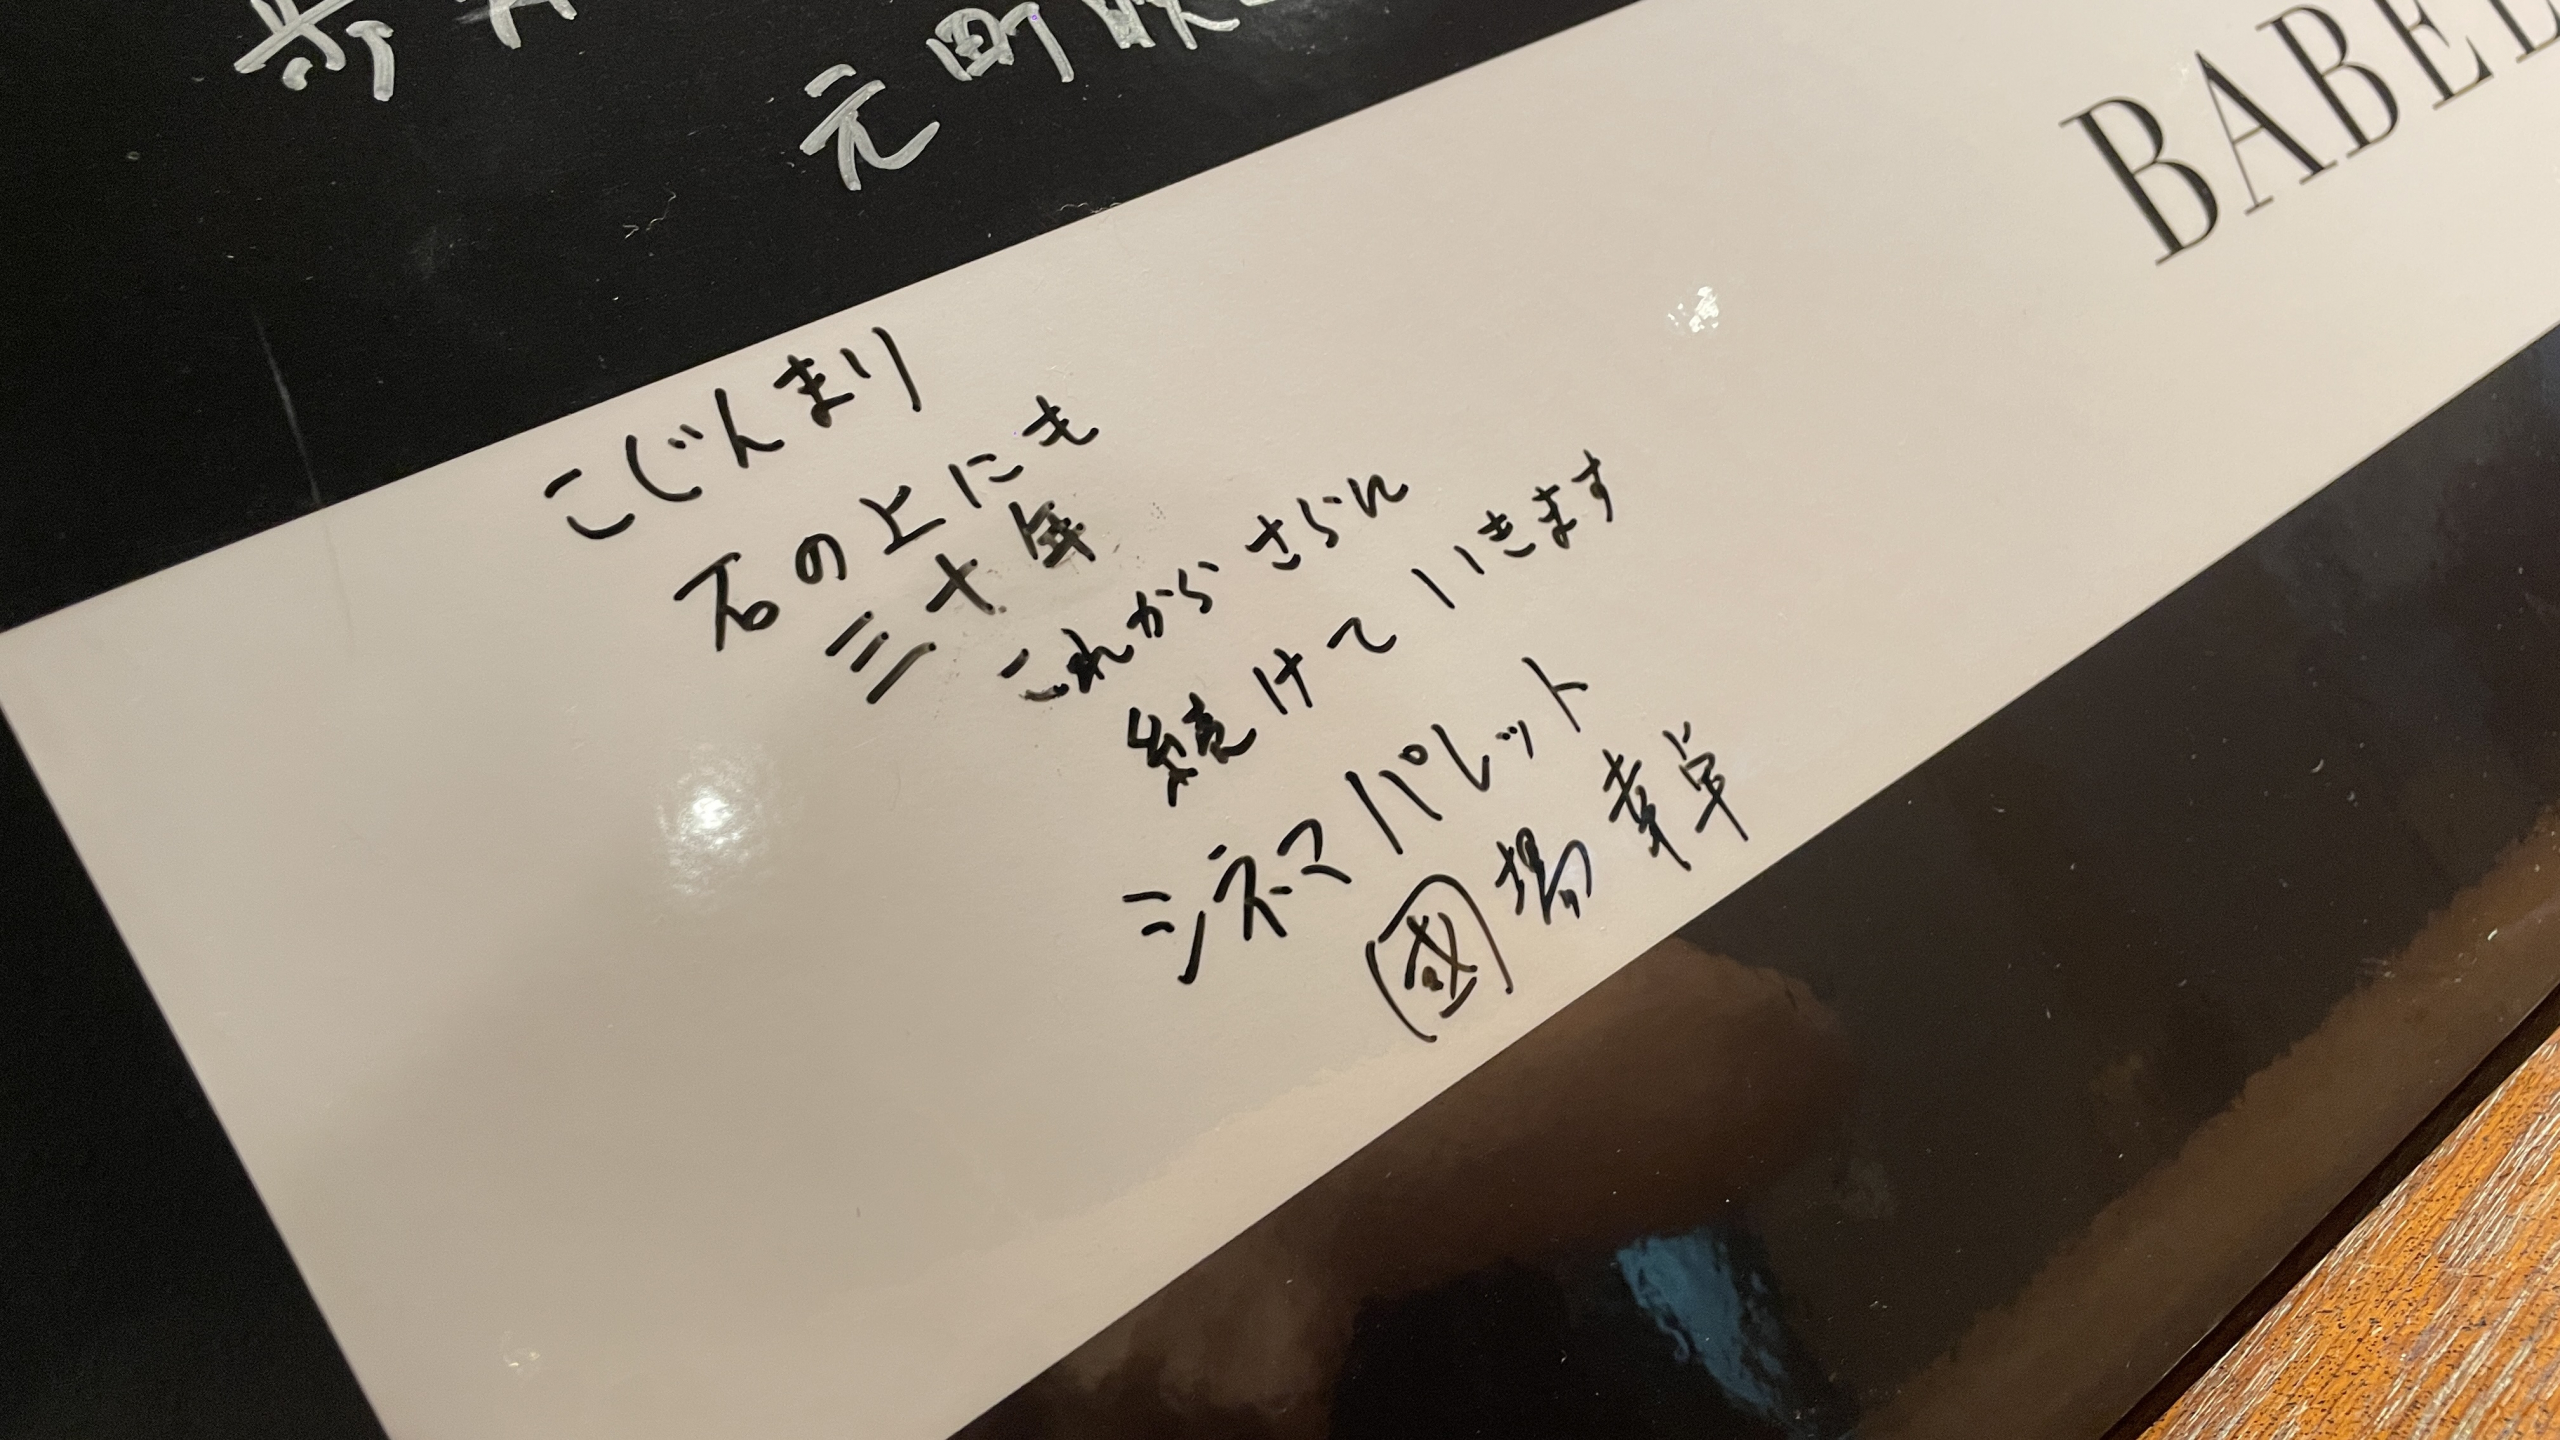 元町映
BABEL
こじんまり
石の上にも
三十年
これからさらに
続けていきます
シネマパレット
國場幸